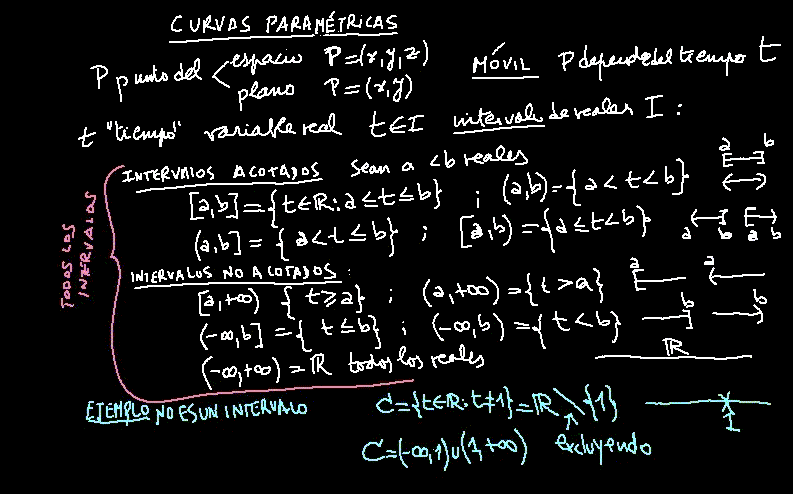 CURVAS PARAMÉTRICAS
P punto del espacio P=(x,y,z) MÓVIL P depende del tiempo t
plano P=(x,y)
t "tiempo" variable real t∈I intervalo de reales I:
INTERVALOS ACOTADOS Sean a<b reales a b
[a,b]={t∈ℝ: a≤t≤b} ; (a,b)={a<t<b}
(a,b]={a<t≤b} ; [a,b)={a≤t<b} a b a b
TODOS LOS INTERVALOS
INTERVALOS NO ACOTADOS: a a
[a,+∞) {t≥a} ; (a,+∞)={t>a}
(-∞,b]={t≤b} ; (-∞,b)={t<b} b b
(-∞,+∞)=ℝ todos los reales ℝ
EJEMPLO NO ES UN INTERVALO C={t∈ℝ: t≠1}=ℝ\{1} 1
C=(-∞,1)∪(1,+∞) excluyendo